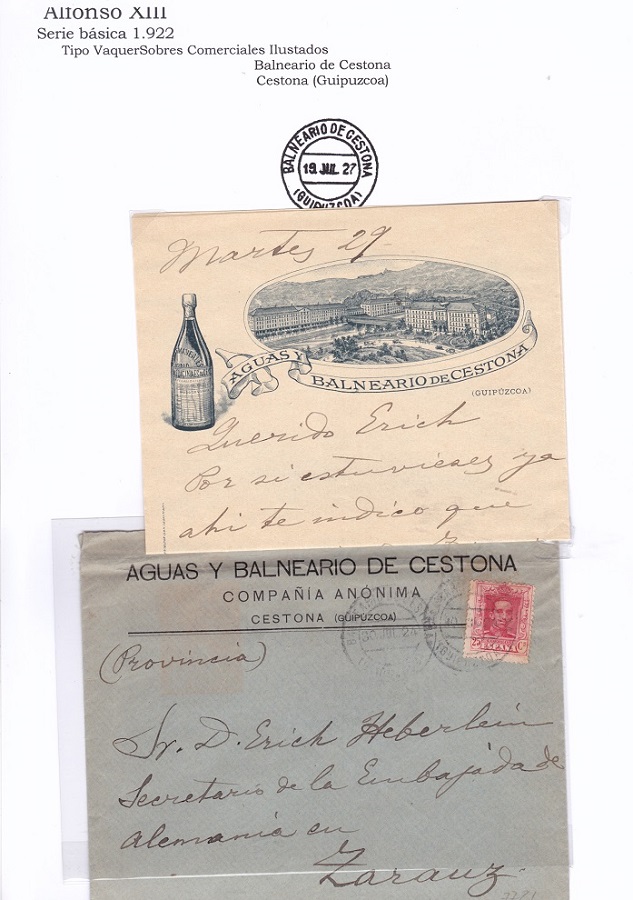 Alfonso XIII
Serie básica 1.922
Tipo VaquerSobres Comerciales Ilustados
Balneario de Cestona
Cestona (Guipuzcoa)
BALNEARIO DE CESTONA
19 JUL 27
(GUIPUZCOA)
Martes 29
AGUAS Y
BALNEARIO DE CESTONA
(GUIPÚZCOA)
Querido Erich
Por si estuvieses ya
ahi te indico que
AGUAS Y BALNEARIO DE CESTONA
COMPAÑIA ANÓNIMA
CESTONA (GUIPUZCOA)
30 JUL 2
25 Cs
ESPAÑA
(Provincia)
Sr. D. Erich Heberlein
Secretario de la Embajáda de
Alemania en
Zarauz